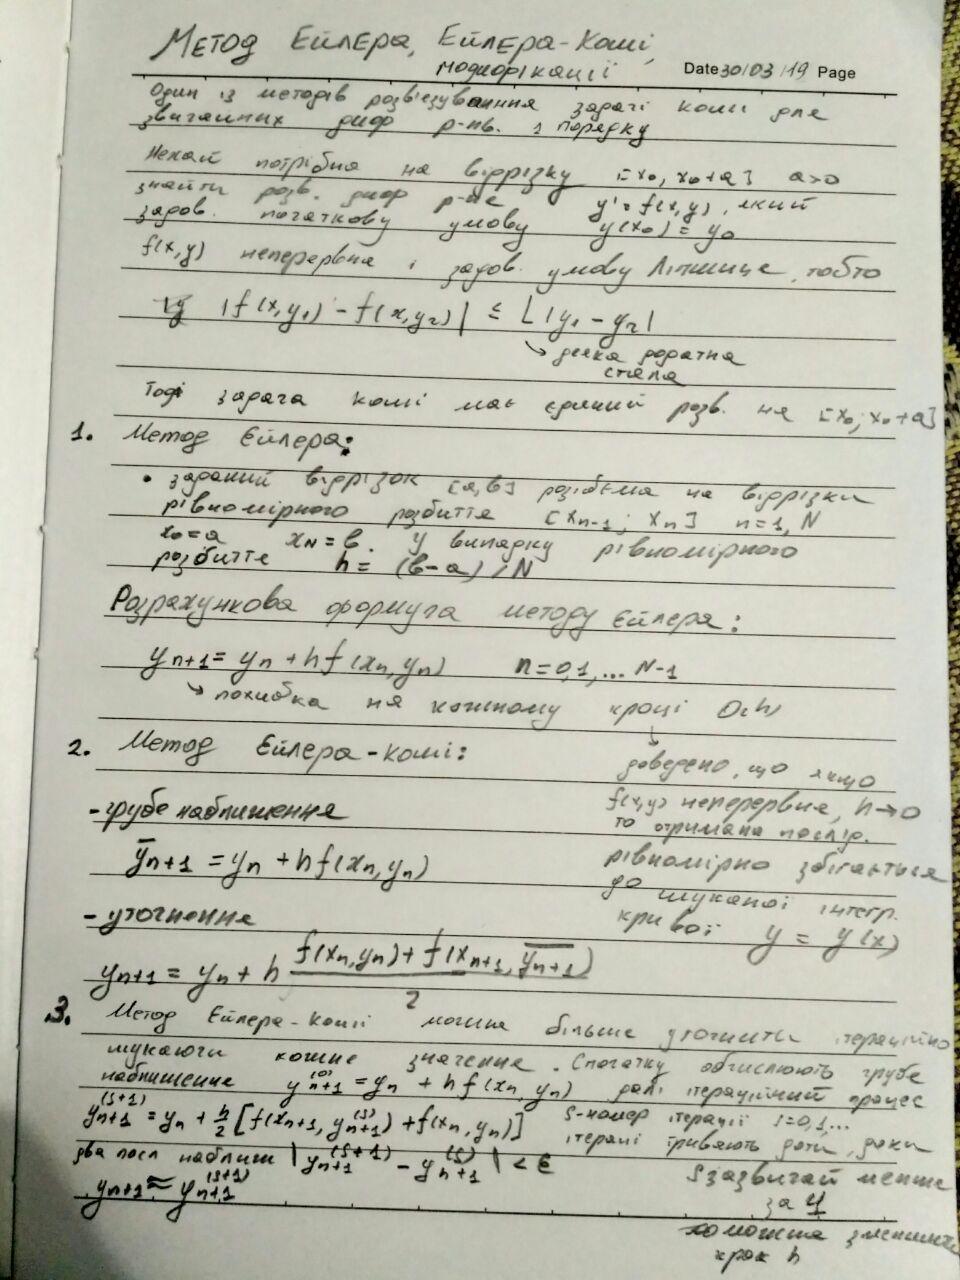 Метод Ейлера, Ейлера-Коші,
модифікації Date 30/03/19 Page
Один із методів розв'язування задачі коші для
звичайних диф р-нь. 1 порядку
Нехай потрібно на відрізку [x₀, x₀+a] a>0
знайти розв. диф р-ня y' = f(x,y), який
задов. початкову умову y(x₀) = y₀
f(x,y) неперервна і задов. умову Ліпшиця, тобто
|f(x,y₁) - f(x,y₂)| ≤ L|y₁ - y₂|
↳ деяка додатна
стала
Тоді задача коші має єдиний розв. на [x₀; x₀+a]
1. Метод Ейлера:
• заданий відрізок [a,b] розіб'ємо на відрізки
рівномірного розбиття [xn-1; xn] n=1,N
x₀=a xN=b. У випадку рівномірного
розбиття h = (b-a)/N
Розрахункова формула методу Ейлера:
yn+1 = yn + hf(xn,yn) n=0,1,... N-1
↳ похибка на кожному кроці O(h)
↓
2. Метод Ейлера-коші:
доведено, що якщо
f(x,y) неперервна, h→0
то отримана послід.
рівномірно збігається
до шуканої інтегр.
кривої y = y(x)
- грубе наближення
ȳn+1 = yn + hf(xn,yn)
- уточнення
yn+1 = yn + h (f(xn,yn) + f(xn+1, ȳn+1)) / 2
3. Метод Ейлера-Коші можна більше уточнити ітераційно
шукаючи кожне значення. Спочатку обчислюють грубе
наближення y(0)n+1 = yn + hf(xn,yn) далі ітераційний процес
y(s+1)n+1 = yn + h/2 [f(xn+1, y(s)n+1) + f(xn,yn)] s-номер ітерації i=0,1,...
ітерації тривають доти, доки
два посл наближ |y(s+1)n+1 - y(s)n+1| < ε
yn+1 ≈ y(s+1)n+1
s зазвичай менше
за 4
можна зменшити
крок h